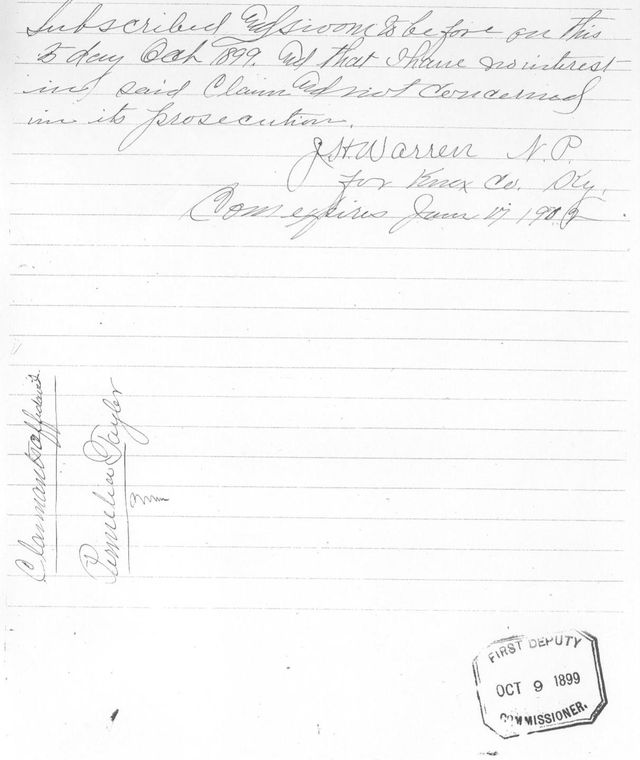 Subscribed and sworn to before on this
5 day Oct 1899. And that I have no interest
in said Claim and not concerned
in its prosecution.
J.H. Warren N.P.
for Knox Co. Ky.
Com expires Jan 17 1902
Claimants affidavit
Permelia Taylor
FIRST DEPUTY
OCT 9 1899
COMMISSIONER.